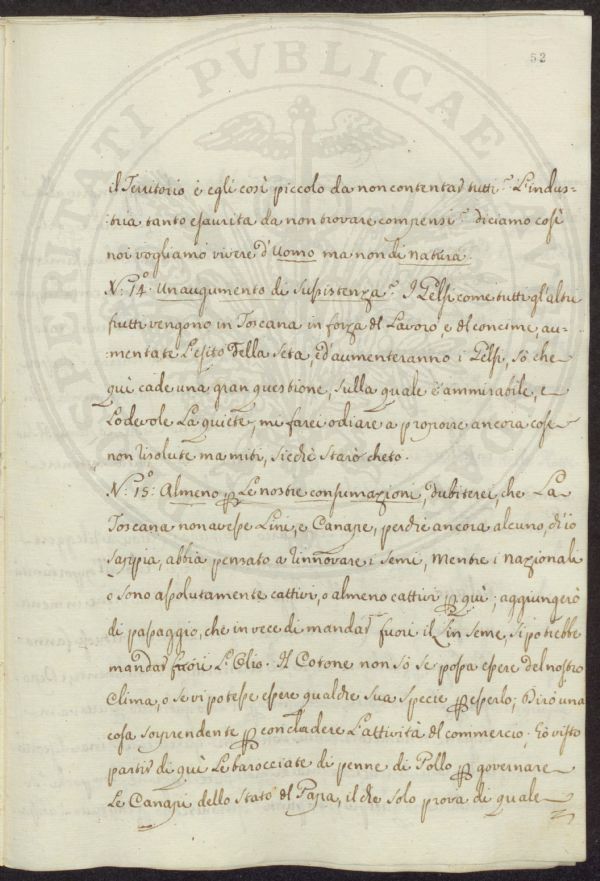 52
il Territorio è egli così piccolo da non contentar tutti? L'indus=
:tria tanto esaurita da non trovare compensi? diciamo così
noi vogliamo vivere d'Uomo ma non di natura.
N.° 14.° Un augumento di Sussistenza? I Gelsi come tutti gl'altri
frutti vengono in Toscana in forza del Lavoro, e del concime, au=
:mentate L'esito della Seta, ed aumenteranno i Gelsi, Sò che
quì cade una gran questione, Sulla quale è ammirabile, e
Lodevole La quiete, mi farei odiare a proporre ancora cose
non risolute ma miti, Sicchè Starò cheto.
N.° 15.° Almeno p Le nostre consumazioni, dubiterei, che La
Toscana non avesse Lini, e Canape, perchè ancora alcuno, ch'io
sappia, abbia penzato a rinnovare i semi, Mentre i nazionali
o sono assolutamente cattivi, o almeno cattivi p quì; aggiungerò
di passaggio, che in vece di mandar fuori il Lin seme, si potrebbe
mandar fuori L'Olio. Il Cotone non sò se possa essere del nostro
Clima, o se vi potesse essere qualche sua specie p esserlo; Dirò una
cosa sorprendente p concludere L'attività del commercio. Hò visto
partir di quì Le barocciate di penne di Pollo p governare
Le Canape dello Stato del Papa, il che solo prova di quale
PROSPERITATI PVBLICAE